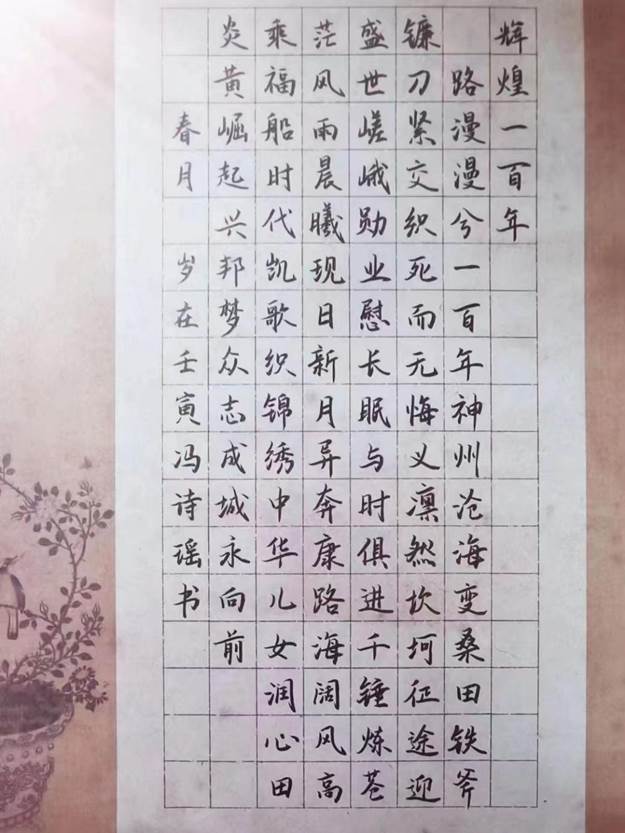 辉煌一百年
路漫漫兮一百年神州沧海变桑田铁斧
镰刀紧交织死而无悔义凛然坎坷征途迎
盛世嵯峨勋业慰长眠与时俱进千锤炼苍
茫风雨晨曦现日新月异奔康路海阔风高
乘福船时代凯歌织锦绣中华儿女润心田
炎黄崛起兴邦梦众志成城永向前
春月 岁在壬寅冯诗瑶书